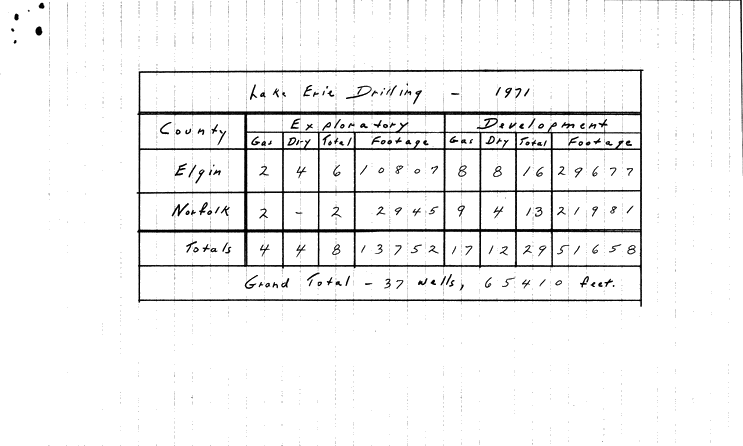 Lake Erie Drilling - 1971
County Exploratory Development
Gas Dry Total Footage Gas Dry Total Footage
Elgin 2 4 6 10807 8 8 16 29677
Norfolk 2 - 2 2945 9 4 13 21981
Totals 4 4 8 13752 17 12 29 51658
Grand Total - 37 wells, 65410 feet.